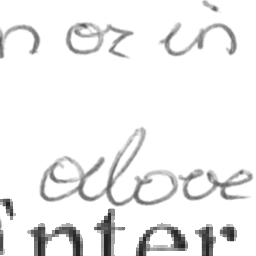 n or in
alove
inter